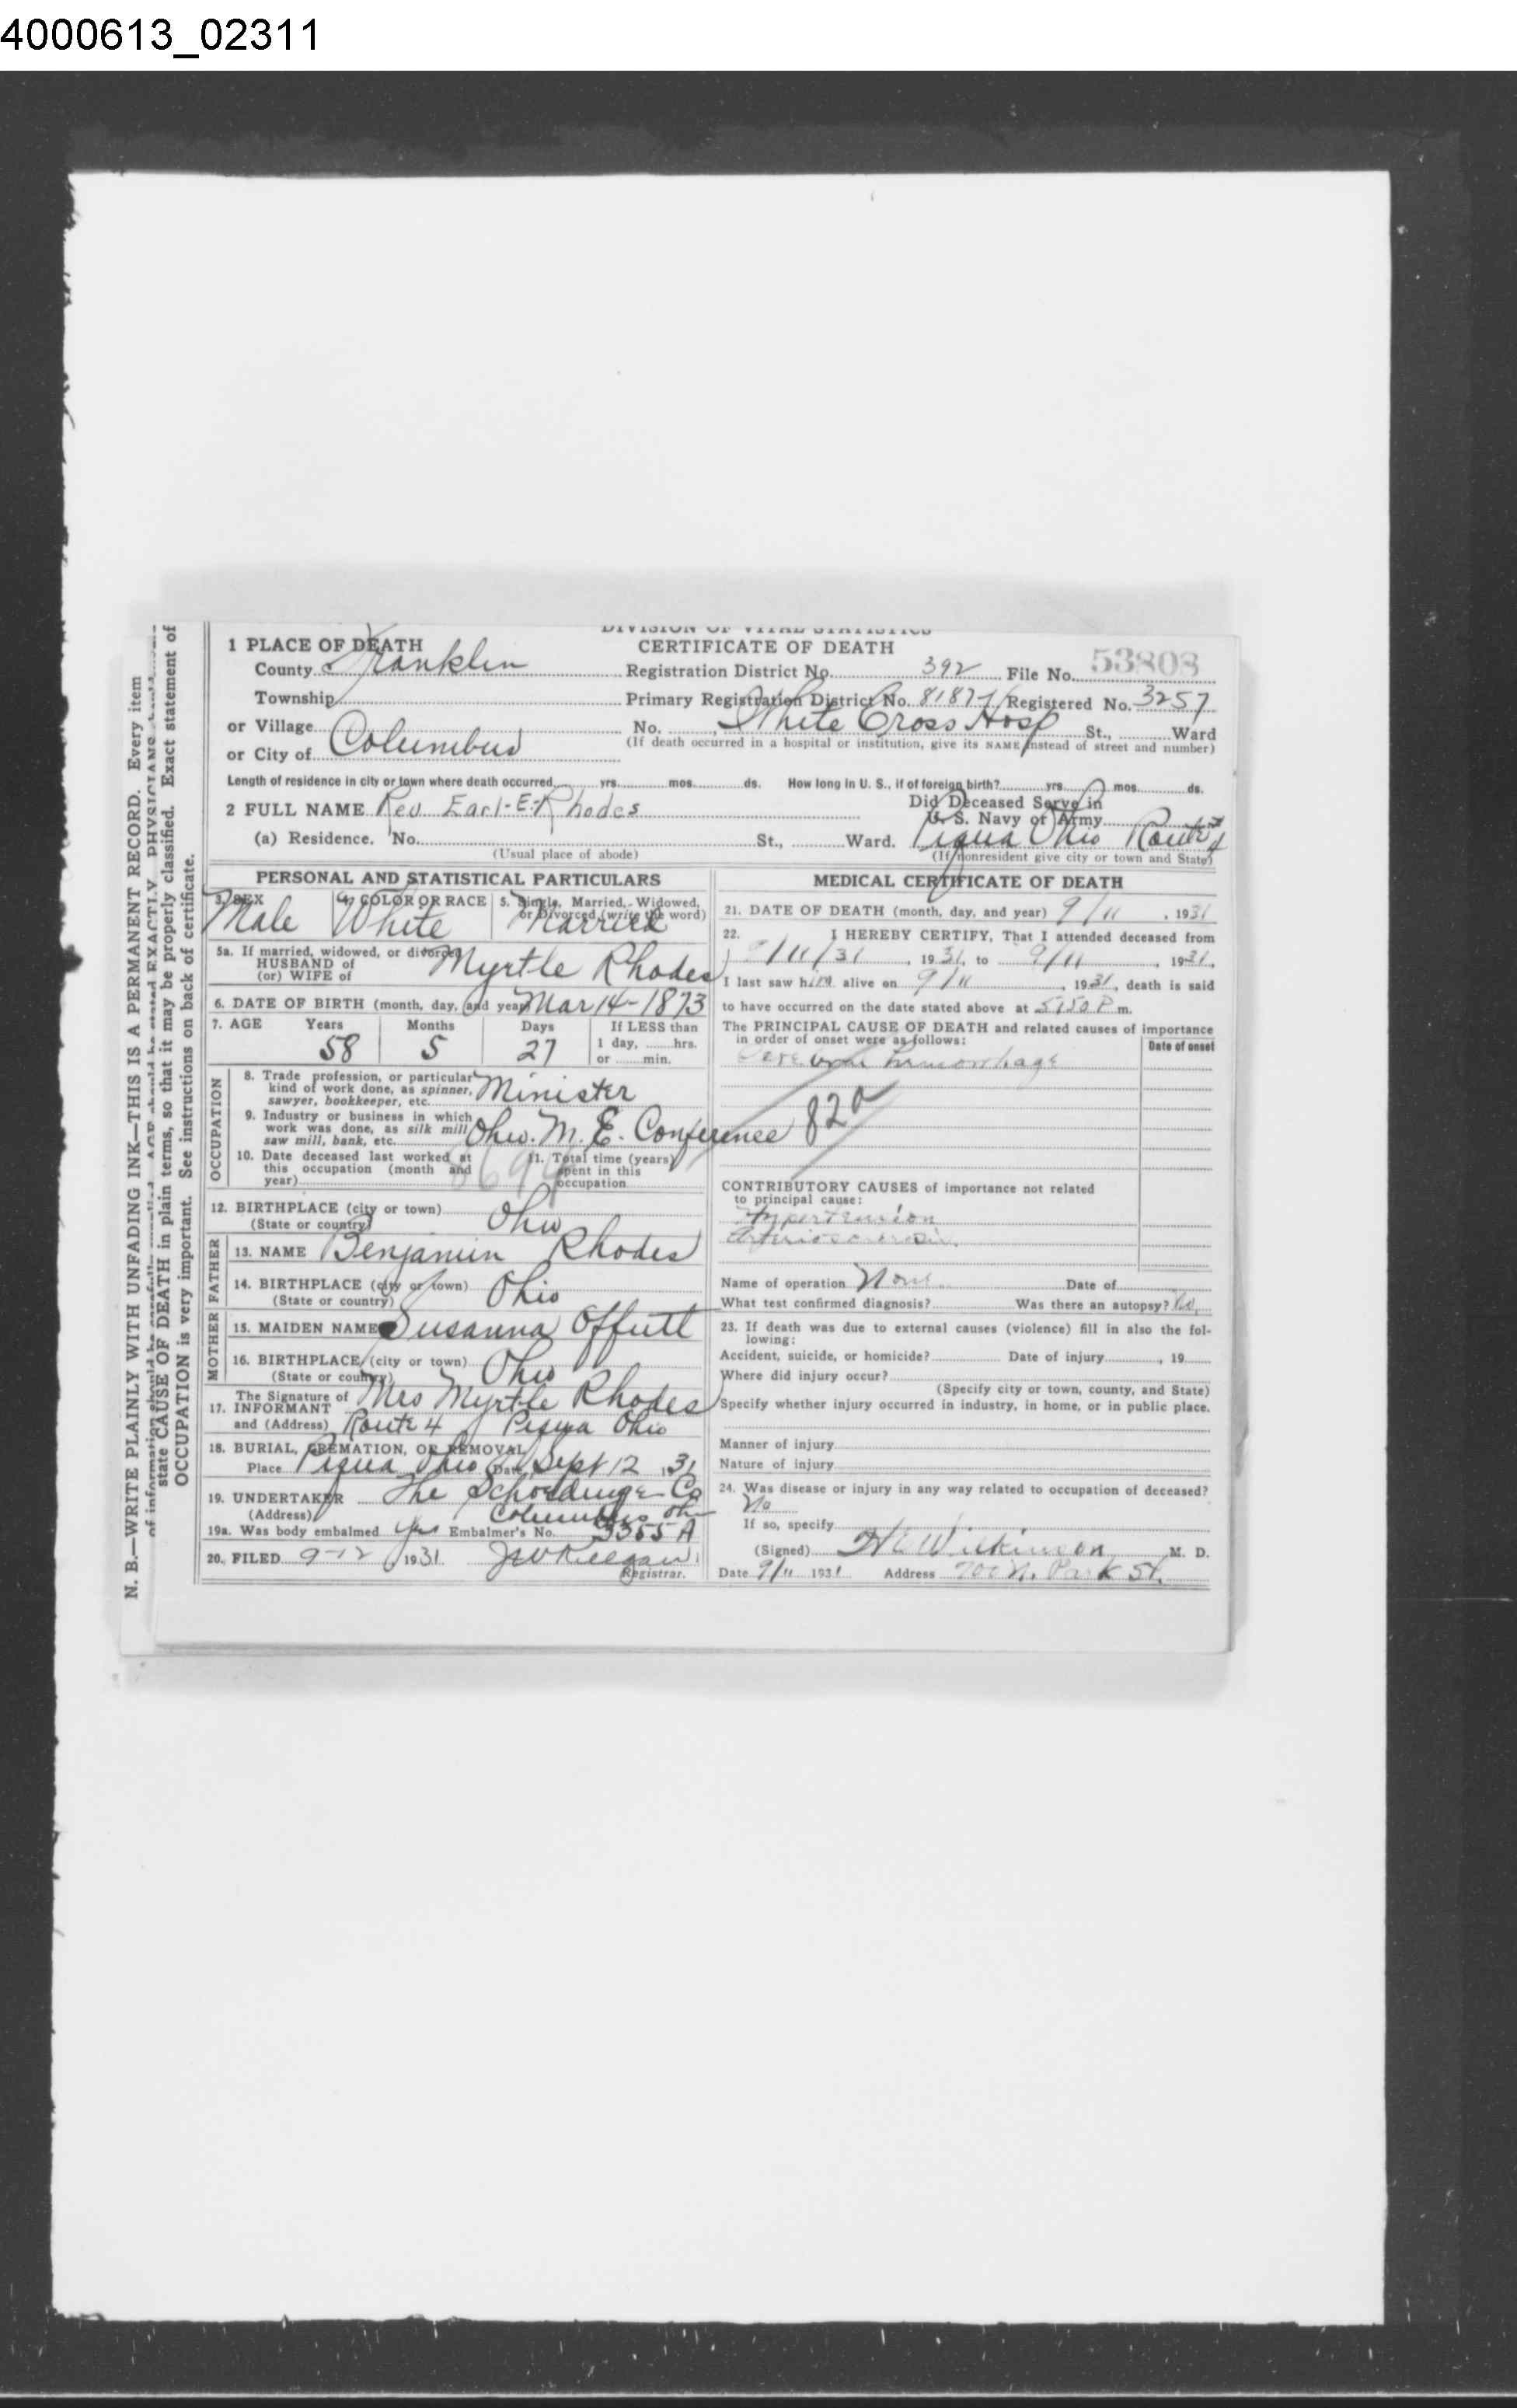 4000613_02311
N. B.—WRITE PLAINLY WITH UNFADING INK—THIS IS A PERMANENT RECORD. Every item
state CAUSE OF DEATH in plain terms, so that it may be properly classified. Exact statement of
OCCUPATION is very important. See instructions on back of certificate.
DIVISION OF VITAL STATISTICS
CERTIFICATE OF DEATH
1 PLACE OF DEATH
County Franklin
Registration District No. 392 File No. 53808
Township
Primary Registration District No. 8187 Registered No. 3257
or Village
No. White Cross Hosp St., Ward
or City of Columbus
(If death occurred in a hospital or institution, give its NAME instead of street and number)
Length of residence in city or town where death occurred yrs. mos. ds. How long in U. S., if of foreign birth? yrs. mos. ds.
2 FULL NAME Rev Earl-E-Rhodes
Did Deceased Serve in
U. S. Navy or Army
(a) Residence. No. St., Ward. Piqua Ohio Route 4
(Usual place of abode) (If nonresident give city or town and State)
PERSONAL AND STATISTICAL PARTICULARS
3. SEX Male
4. COLOR OR RACE White
5. Single, Married, Widowed,
or Divorced (write the word) Married
5a. If married, widowed, or divorced
HUSBAND of
(or) WIFE of Myrtle Rhodes
6. DATE OF BIRTH (month, day, and year) Mar 14-1873
7. AGE Years Months Days If LESS than
1 day, hrs.
or min.
58 5 27
OCCUPATION
8. Trade, profession, or particular
kind of work done, as spinner,
sawyer, bookkeeper, etc. Minister
9. Industry or business in which
work was done, as silk mill,
saw mill, bank, etc. Ohio. M. E. Conference
10. Date deceased last worked at
this occupation (month and
year)
11. Total time (years)
spent in this
occupation
12. BIRTHPLACE (city or town)
(State or country) Ohio
FATHER
13. NAME Benjamin Rhodes
14. BIRTHPLACE (city or town)
(State or country) Ohio
MOTHER
15. MAIDEN NAME Susanna Offutt
16. BIRTHPLACE (city or town)
(State or country) Ohio
The Signature of
17. INFORMANT Mrs Myrtle Rhodes
and (Address) Route 4 Piqua Ohio
18. BURIAL, CREMATION, OR REMOVAL
Place Piqua Ohio Date Sept 12 1931
19. UNDERTAKER The Schoedinger Co
(Address) Columbus Ohio
19a. Was body embalmed yes Embalmer's No. 3355 A
20. FILED 9-12 1931
Registrar.
MEDICAL CERTIFICATE OF DEATH
21. DATE OF DEATH (month, day, and year) 9/11, 1931
22. I HEREBY CERTIFY, That I attended deceased from
9/11/31, 1931, to 9/11, 1931,
I last saw him alive on 9/11, 1931, death is said
to have occurred on the date stated above at 5:50 P m.
The PRINCIPAL CAUSE OF DEATH and related causes of importance
in order of onset were as follows:
Date of onset
Cerebral hemorrhage
82a
CONTRIBUTORY CAUSES of importance not related
to principal cause:
Hypertension
Arteriosclerosis
Name of operation None Date of
What test confirmed diagnosis? Was there an autopsy? No
23. If death was due to external causes (violence) fill in also the fol-
lowing:
Accident, suicide, or homicide? Date of injury, 19
Where did injury occur?
(Specify city or town, county, and State)
Specify whether injury occurred in industry, in home, or in public place.
Manner of injury
Nature of injury
24. Was disease or injury in any way related to occupation of deceased?
No
If so, specify
(Signed) H C Wilkinson M. D.
Date 9/11 1931 Address 700 N. Park St.